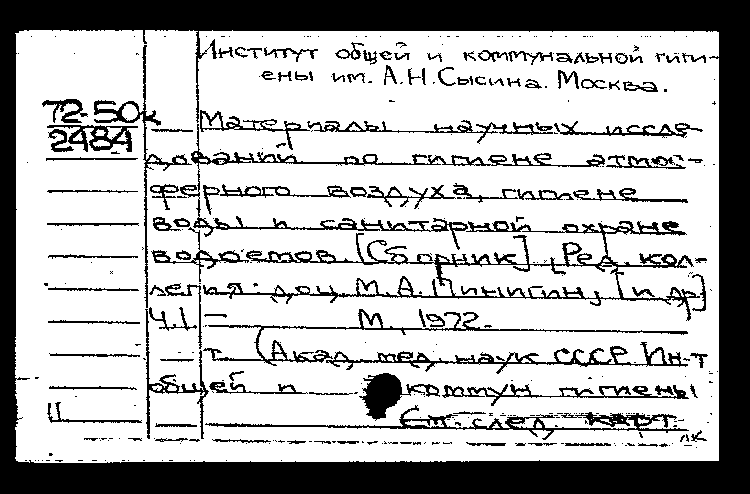 Институт общей и коммунальной гиги-
ены им. А.Н.Сысина. Москва.
72-50к
2484
Материалы научных иссле-
дований по гигиене атмос-
ферного воздуха, гигиене
воды и санитарной охране
водоемов. [Сборник]. [Ред. кол-
легия: доц. М.А.Пинигин, [и др.]
Ч.1. - М., 1972.
т. (Акад. мед. наук СССР. Ин-т
общей и коммун гигиены
См. след. карт.
лк